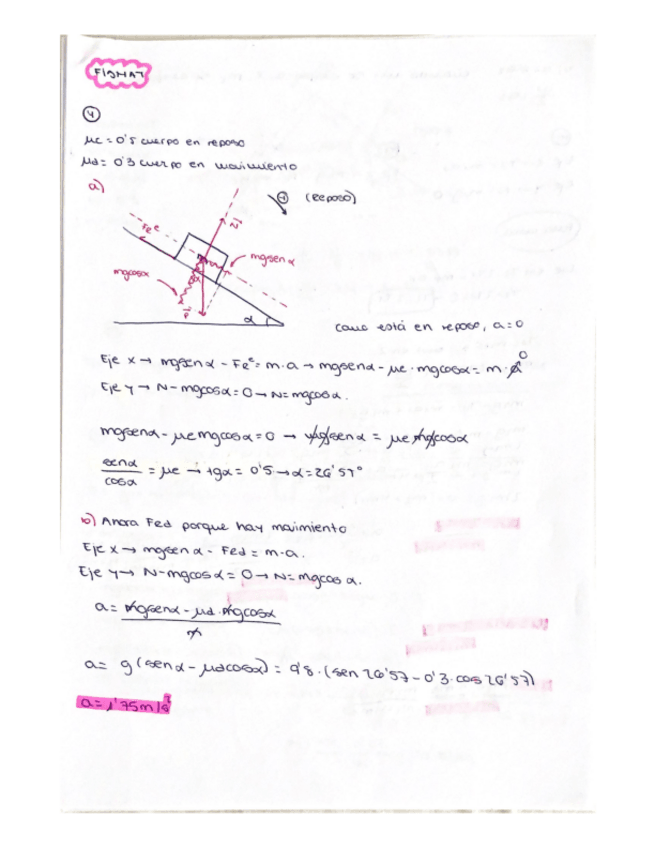 FISMAT
4
μe = 0'5 cuerpo en reposo
μd = 0'3 cuerpo en movimiento
a)
(Reposo)
N
Fre
mgsen α
mgcosα
P
α
como está en reposo, a=0
Eje x → mgsen α - Fre = m·a → mgsenα - μe·mgcosα = m·a 0
Eje y → N - mgcosα = 0 → N = mgcosα.
mgsenα - μe mgcosα = 0 → mgsen α = μe mgcosα
senα
cosα
= μe → tgα = 0'5 → α = 26'57°
b) Ahora Fed porque hay movimiento
Eje x → mgsen α - Fed = m·a.
Eje y → N - mgcos α = 0 → N = mgcos α.
a = mgsenα - μd·mgcosα
m
a = g(senα - μdcosα) = 9'8·(sen 26'57 - 0'3·cos 26'57)
a = 1'75 m/s²